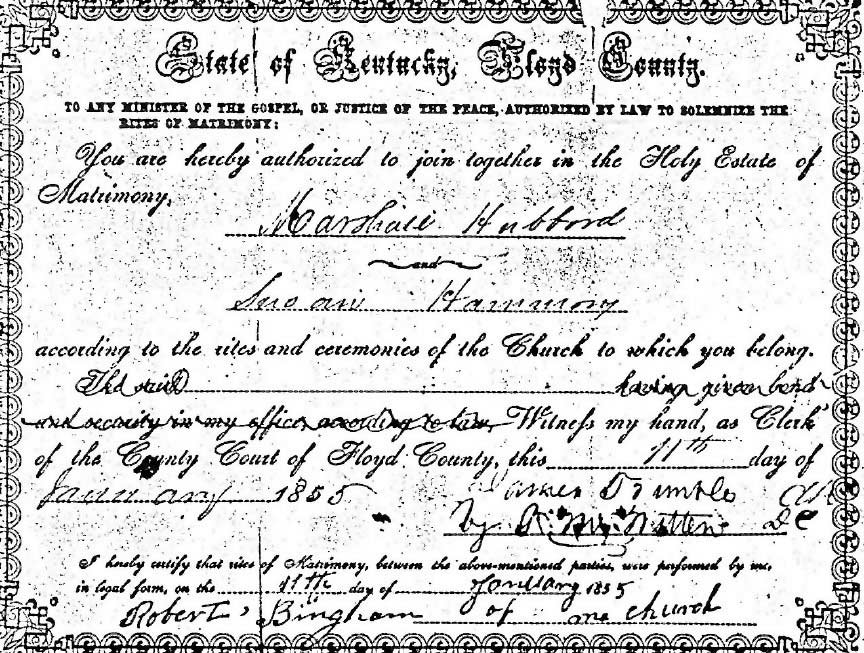 State of Kentucky, Floyd County.
TO ANY MINISTER OF THE GOSPEL, OR JUSTICE OF THE PEACE, AUTHORIZED BY LAW TO SOLEMNIZE THE
RITES OF MATRIMONY:
You are hereby authorized to join together in the Holy Estate of
Matrimony,
Marshall Hubbord
and
Susan Hammon
according to the rites and ceremonies of the Church to which you belong.
The said having given bond
and security in my office, according to law, Witness my hand, as Clerk
of the County Court of Floyd County, this 11th day of
January 1855 James Trimble
by
I hereby certify that rites of Matrimony, between the above-mentioned parties, were performed by me,
in legal form, on the 11th day of January 1855
Robert Bingham of me church